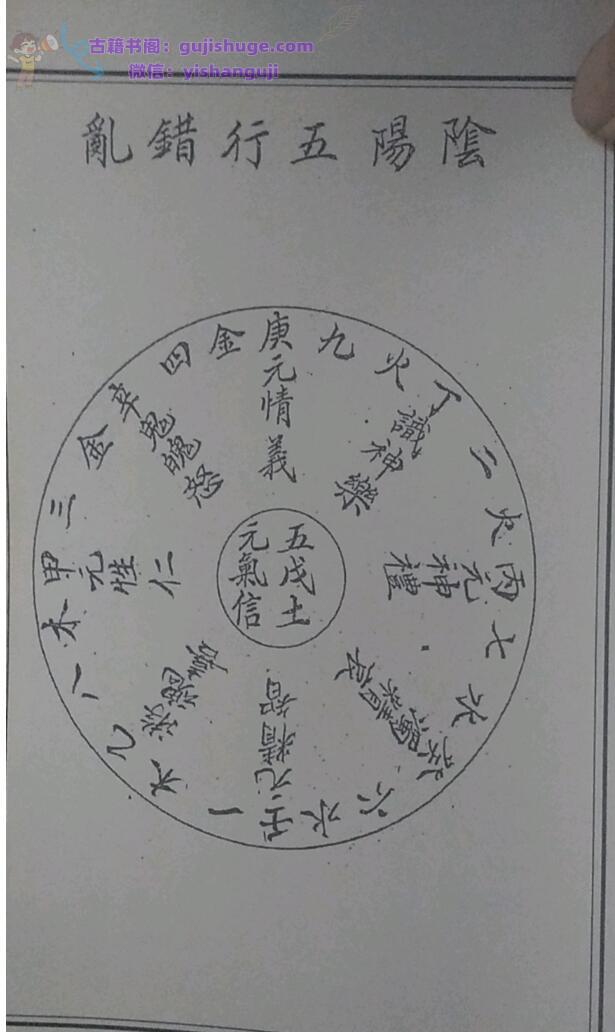 古籍书阁：gujishuge.com
微信：yishanguji
陰陽五行錯亂
庚元情義
九
火
丁識神樂
二
火
丙元神禮
七
水
癸濁精哀
六
水
壬元精智
一
木
乙
八
木
甲元性仁
三
金
辛鬼魄怒
四
金
五戊土
元氣信